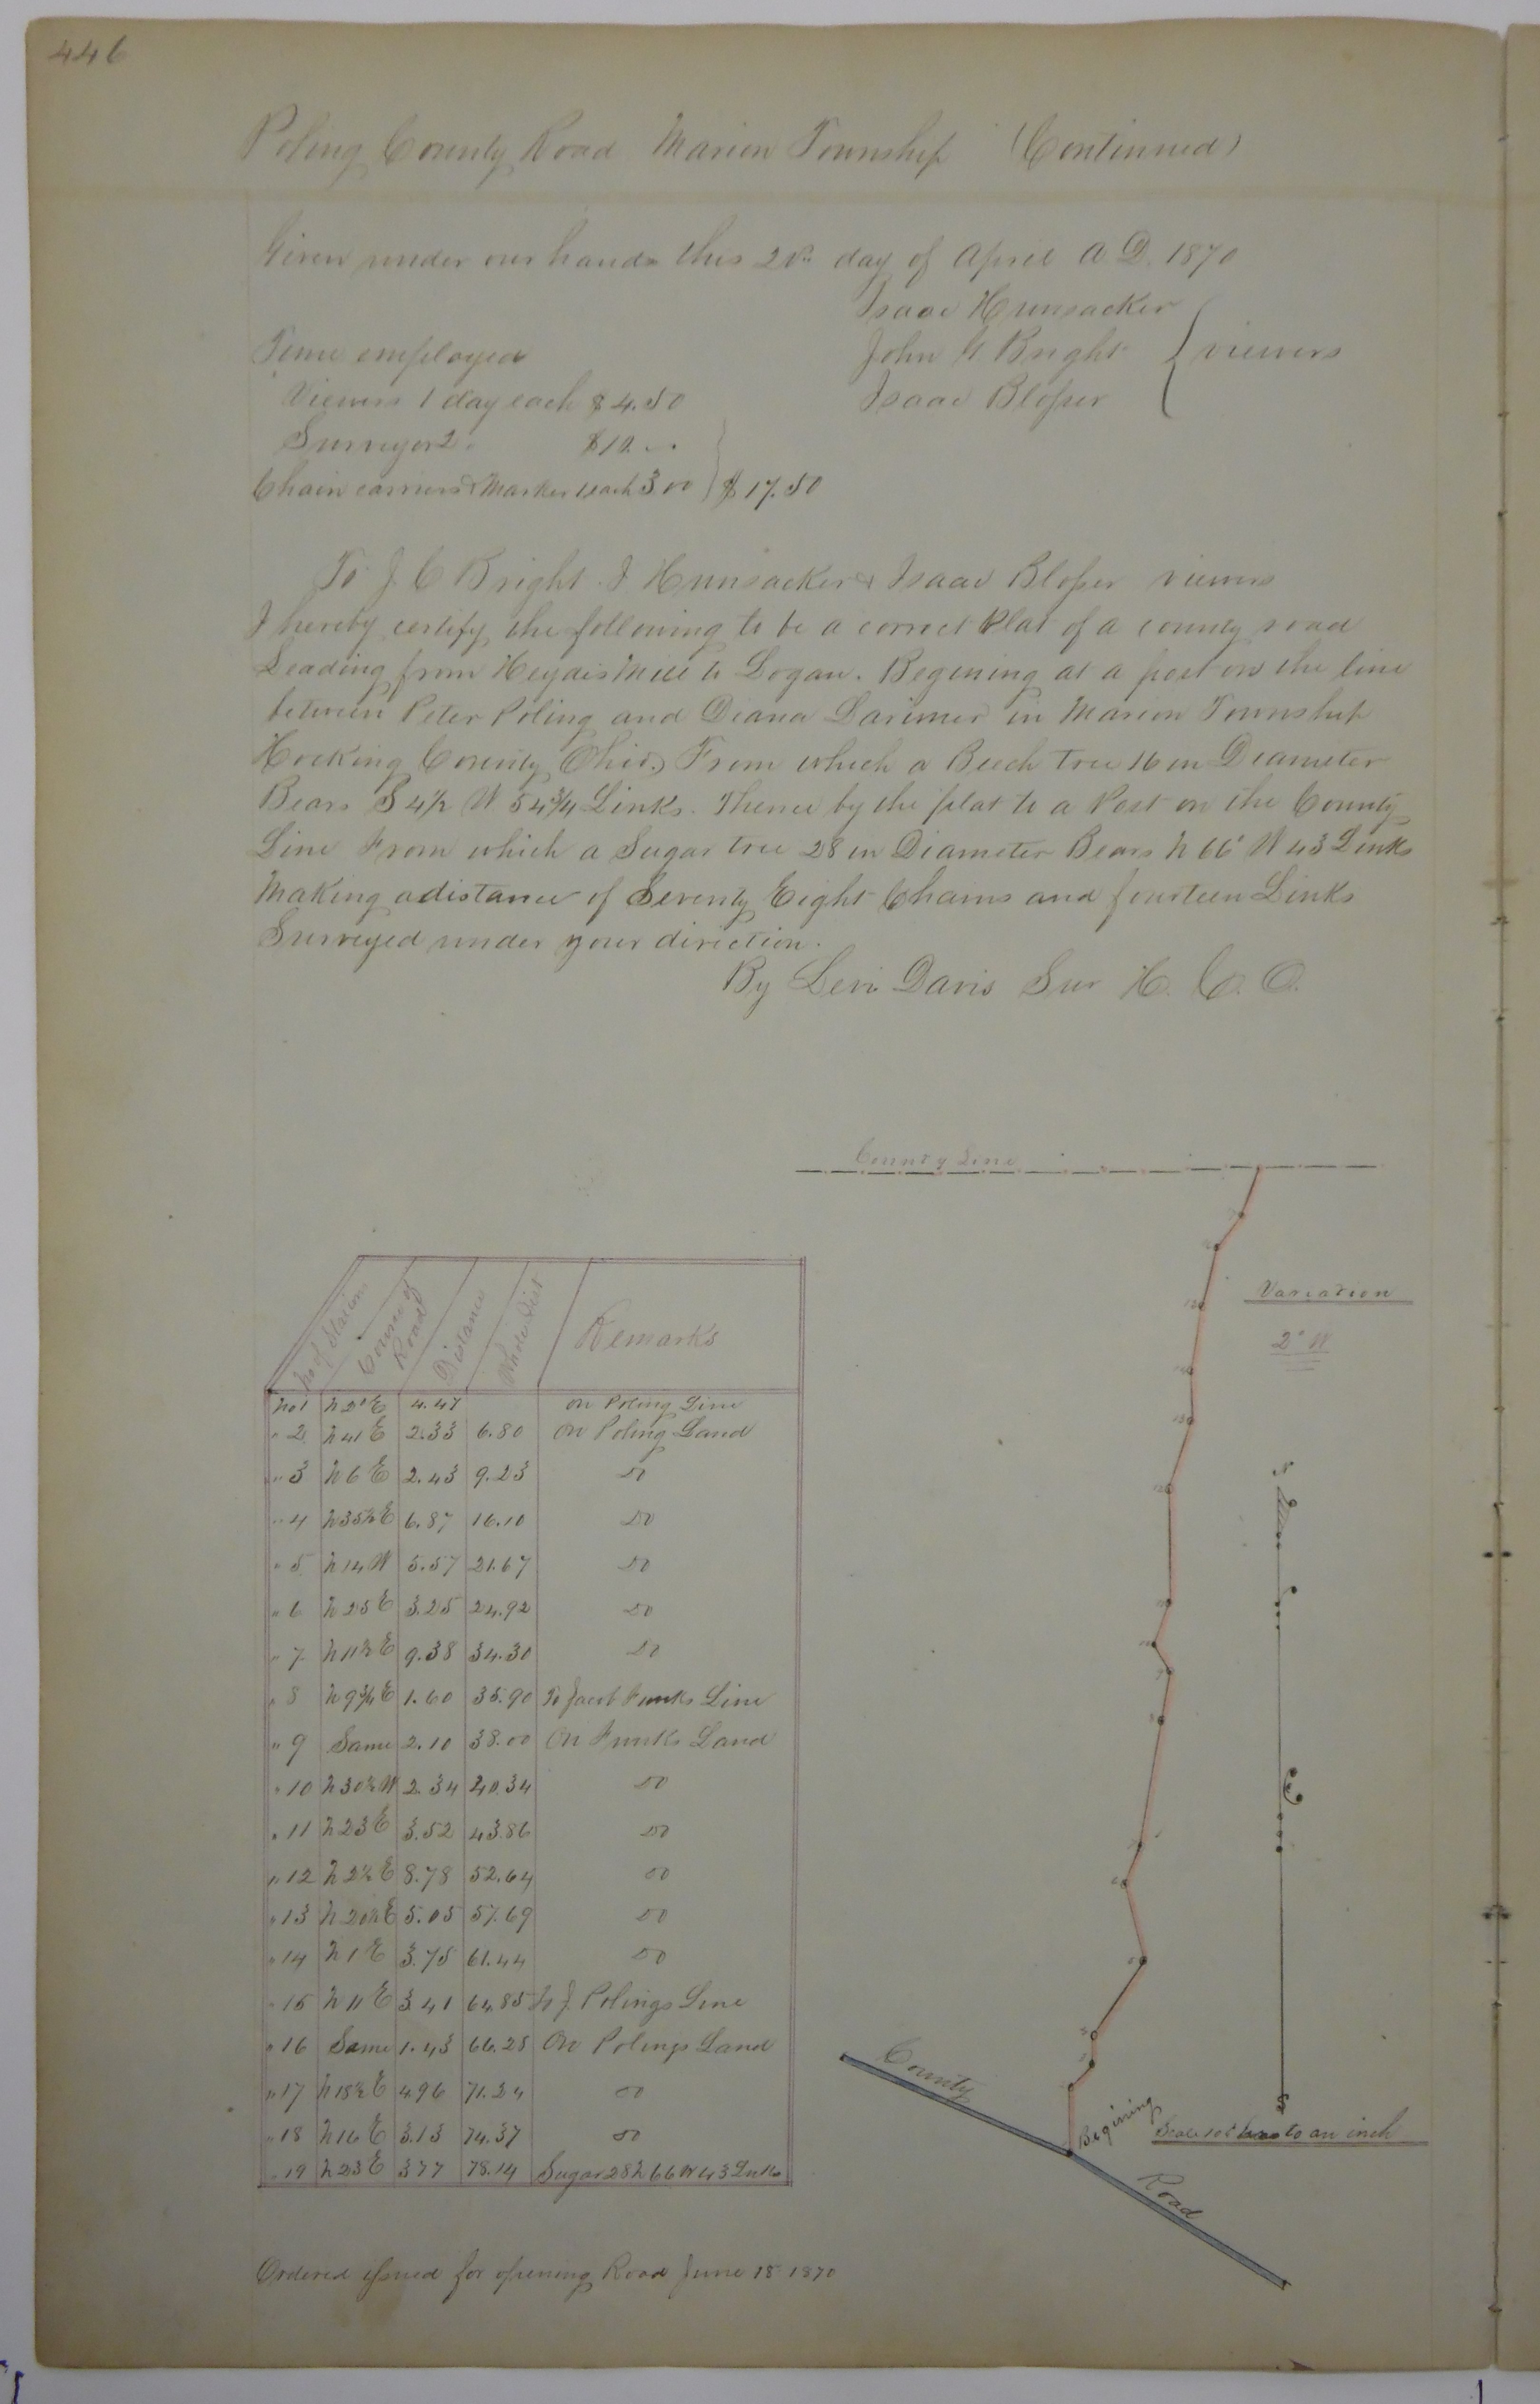 446
Poling County Road Marion Township (Continued)
Given under our hands this day of April A.D. 1870
Isaac Hunsacker
Time employed John Bright } viewers
Viewers 1 day each $4.50 Isaac Bloser
Surveyor 2 $10.00
Chain carriers & Marker each 3.00 } $17.50
To J C Bright J Hunsacker & Isaac Bloser viewers
I hereby certify the following to be a correct Plat of a county road
Leading from Mill to Logan. Begining at a post on the line
between Peter Poling and Diana Larimer in Marion Township
Hocking County Ohio. From which a Beech tree 16 in Diameter
Bears S 4½ W 54¾ Links. Thence by the plat to a Post on the County
Line From which a Sugar tree 28 in Diameter Bears N 66° W 43 Links
Making a distance of Seventy Eight Chains and fourteen Links
Surveyed under your direction.
By Levi Davis Sur H. C. O.
County Line
Variation
2° W
No of Station Course of Road Distance Whole Dist Remarks
No 1 N 2° E 4.47 on Poling Line
" 2 N 41 E 2.33 6.80 On Poling Land
" 3 N 6 E 2.43 9.23 Do
" 4 N 35½ E 6.87 16.10 Do
" 5 N 14 W 5.57 21.67 Do
" 6 N 25 E 3.25 24.92 Do
" 7 N 11½ E 9.38 34.30 Do
" 8 N 9¾ E 1.60 35.90 To Jacob Funks Line
" 9 Same 2.10 38.00 On Funks Land
" 10 N 30½ W 2.34 40.34 Do
" 11 N 23 E 3.52 43.86 Do
" 12 N 2½ E 8.78 52.64 Do
" 13 N 20½ E 5.05 57.69 Do
" 14 N 1 E 3.75 61.44 Do
" 15 N 11 E 3.41 64.85 Polings Line
" 16 Same 1.43 66.28 On Polings Land
" 17 N 18½ E 4.96 71.24 Do
" 18 N 16 E 3.13 74.37 Do
" 19 N 23 E 3.77 78.14 Sugar 28 N 66 W 43 Links
N
S
County
Road
Begining
Scale to an inch
Ordered issued for opening Road June 18 1870